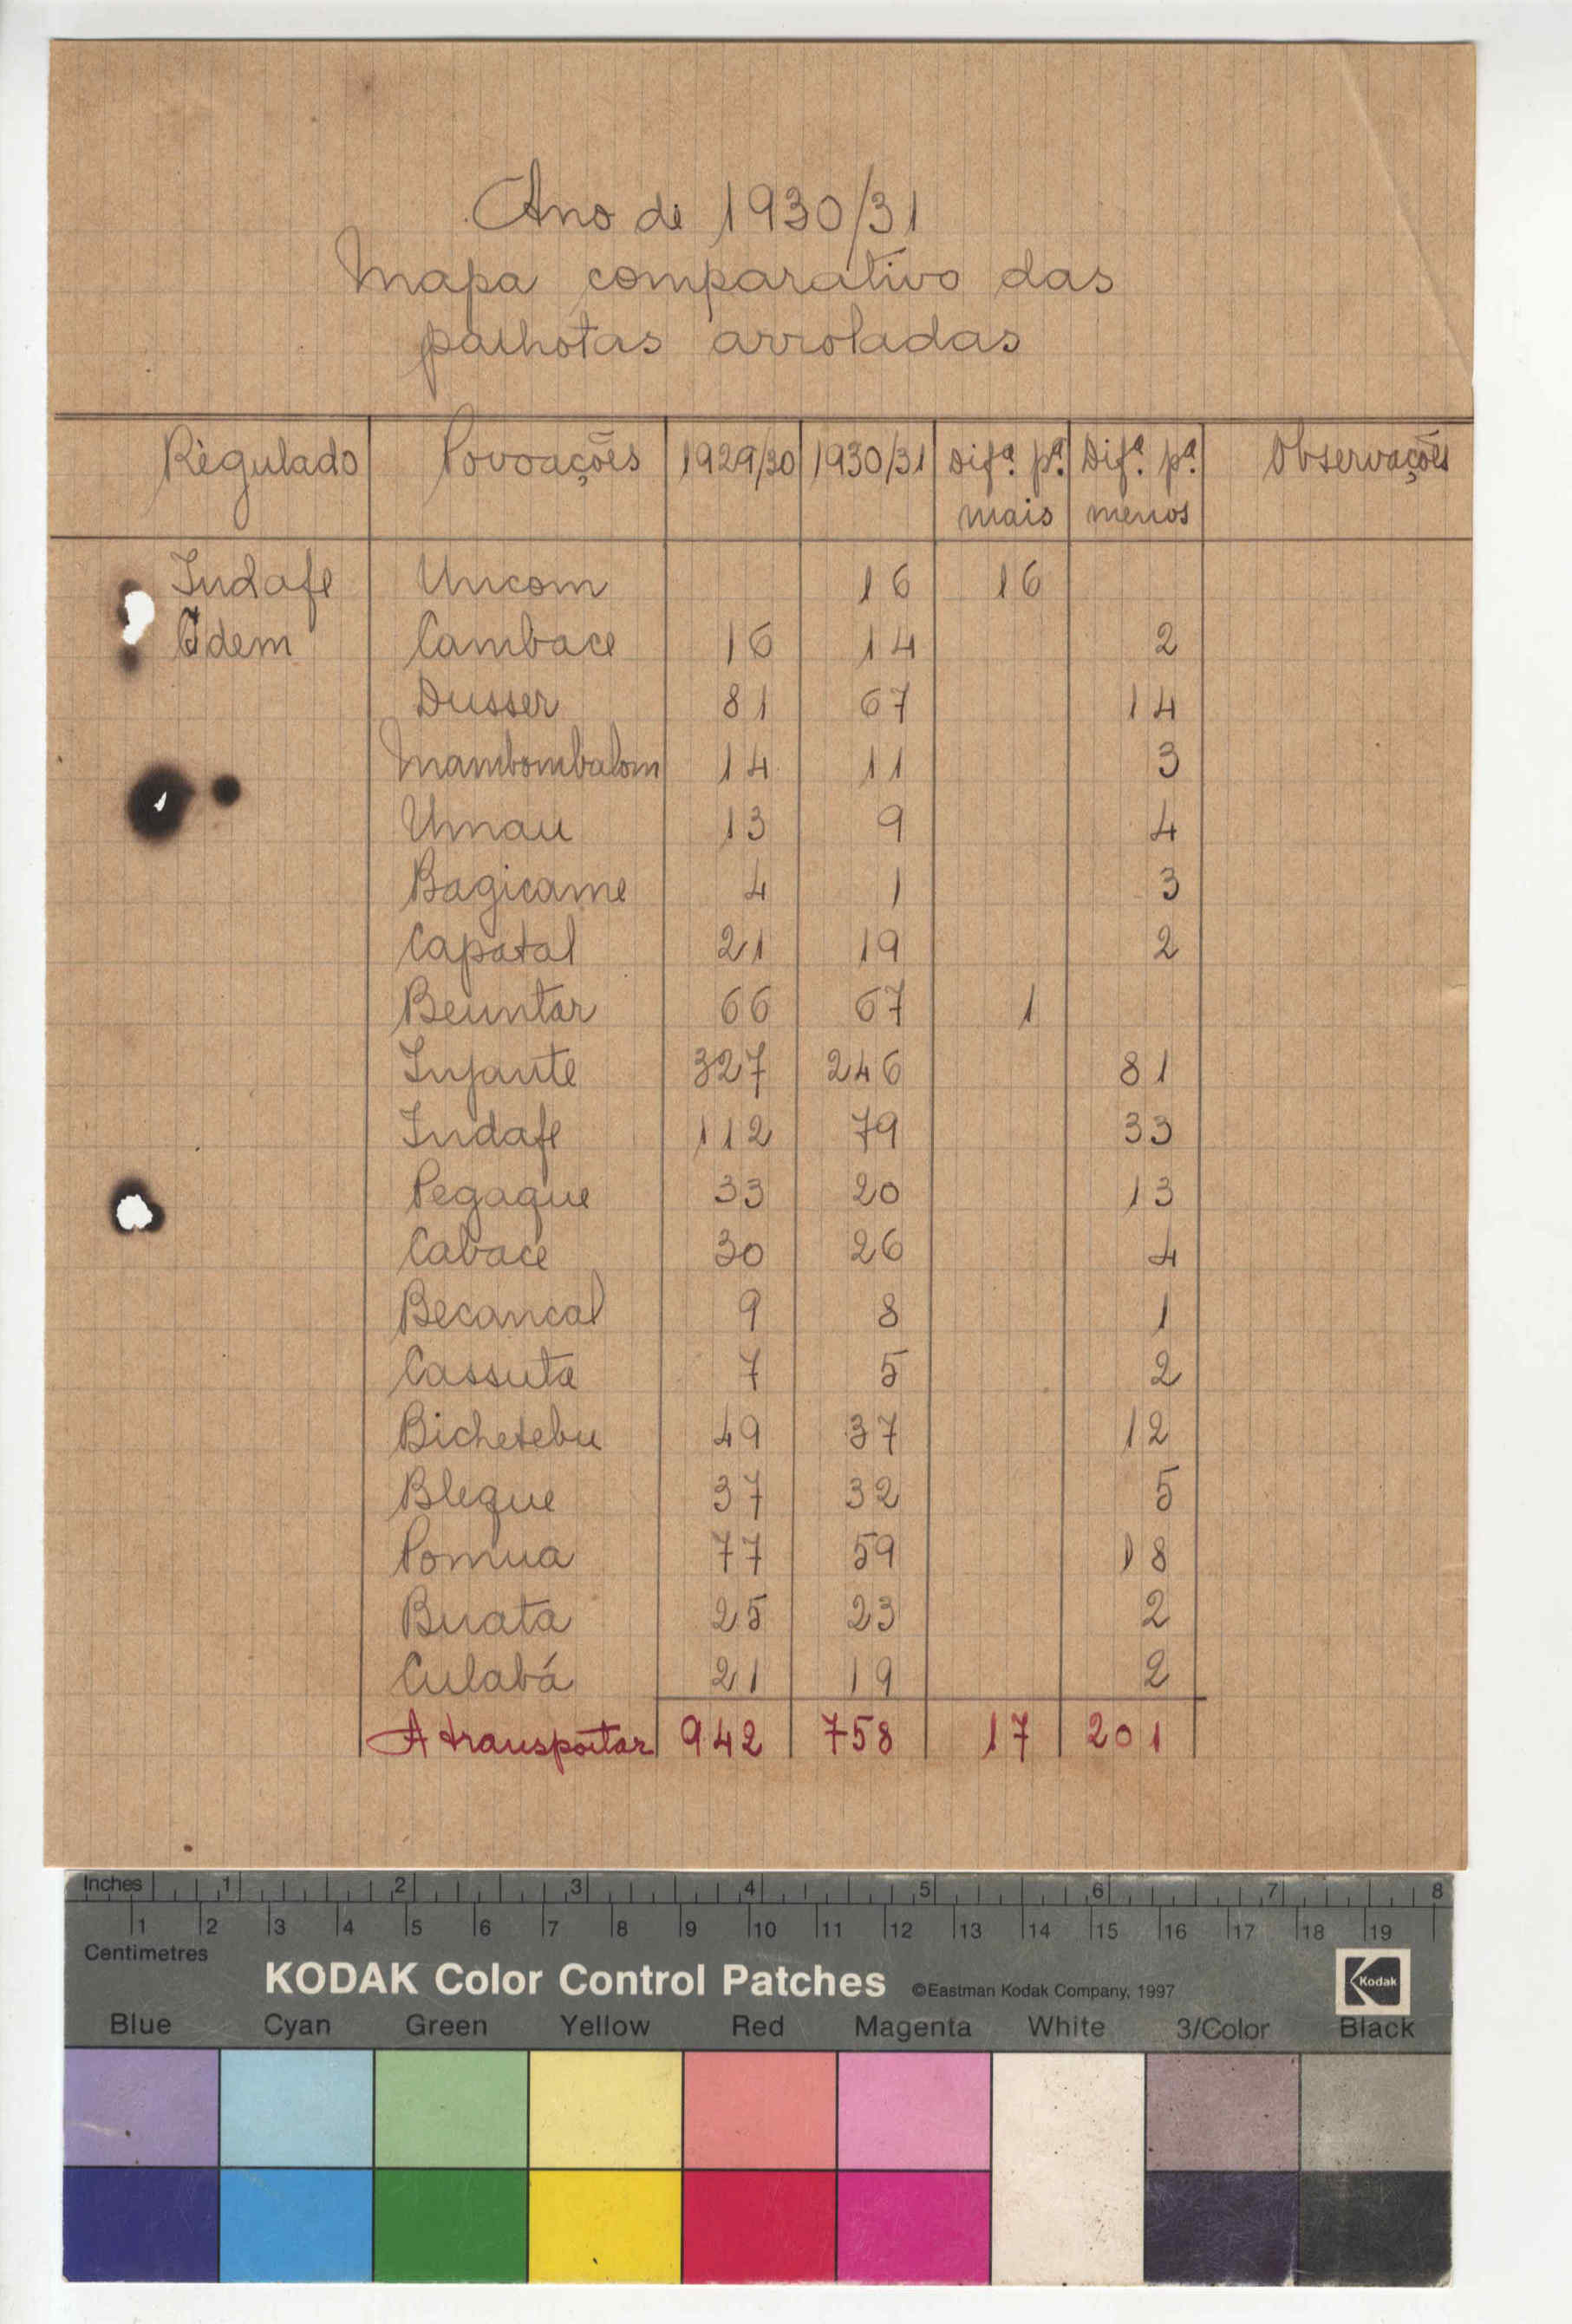 Ano de 1930/31
Mapa comparativo das
palhotas arroladas
Règulado Povoações 1929/30 1930/31 Difª. pª. mais Difª. pª. menos Observações
Indafe Uncom 16 16
Idem Cambace 16 14 2
Dusser 81 67 14
Mambombalom 14 11 3
Umau 13 9 4
Bagicame 4 1 3
Capatal 21 19 2
Beuntar 66 67 1
Injante 327 246 81
Indafe 112 79 33
Pegaque 33 20 13
Cabace 30 26 4
Becancal 9 8 1
Cassuta 7 5 2
Bichetebu 49 37 12
Bleque 37 32 5
Pomua 77 59 18
Buata 25 23 2
Culabá 21 19 2
A transportar 942 758 17 201
Inches 1 2 3 4 5 6 7 8
1 2 3 4 5 6 7 8 9 10 11 12 13 14 15 16 17 18 19
Centimetres
KODAK Color Control Patches ©Eastman Kodak Company, 1997 Kodak
Blue Cyan Green Yellow Red Magenta White 3/Color Black